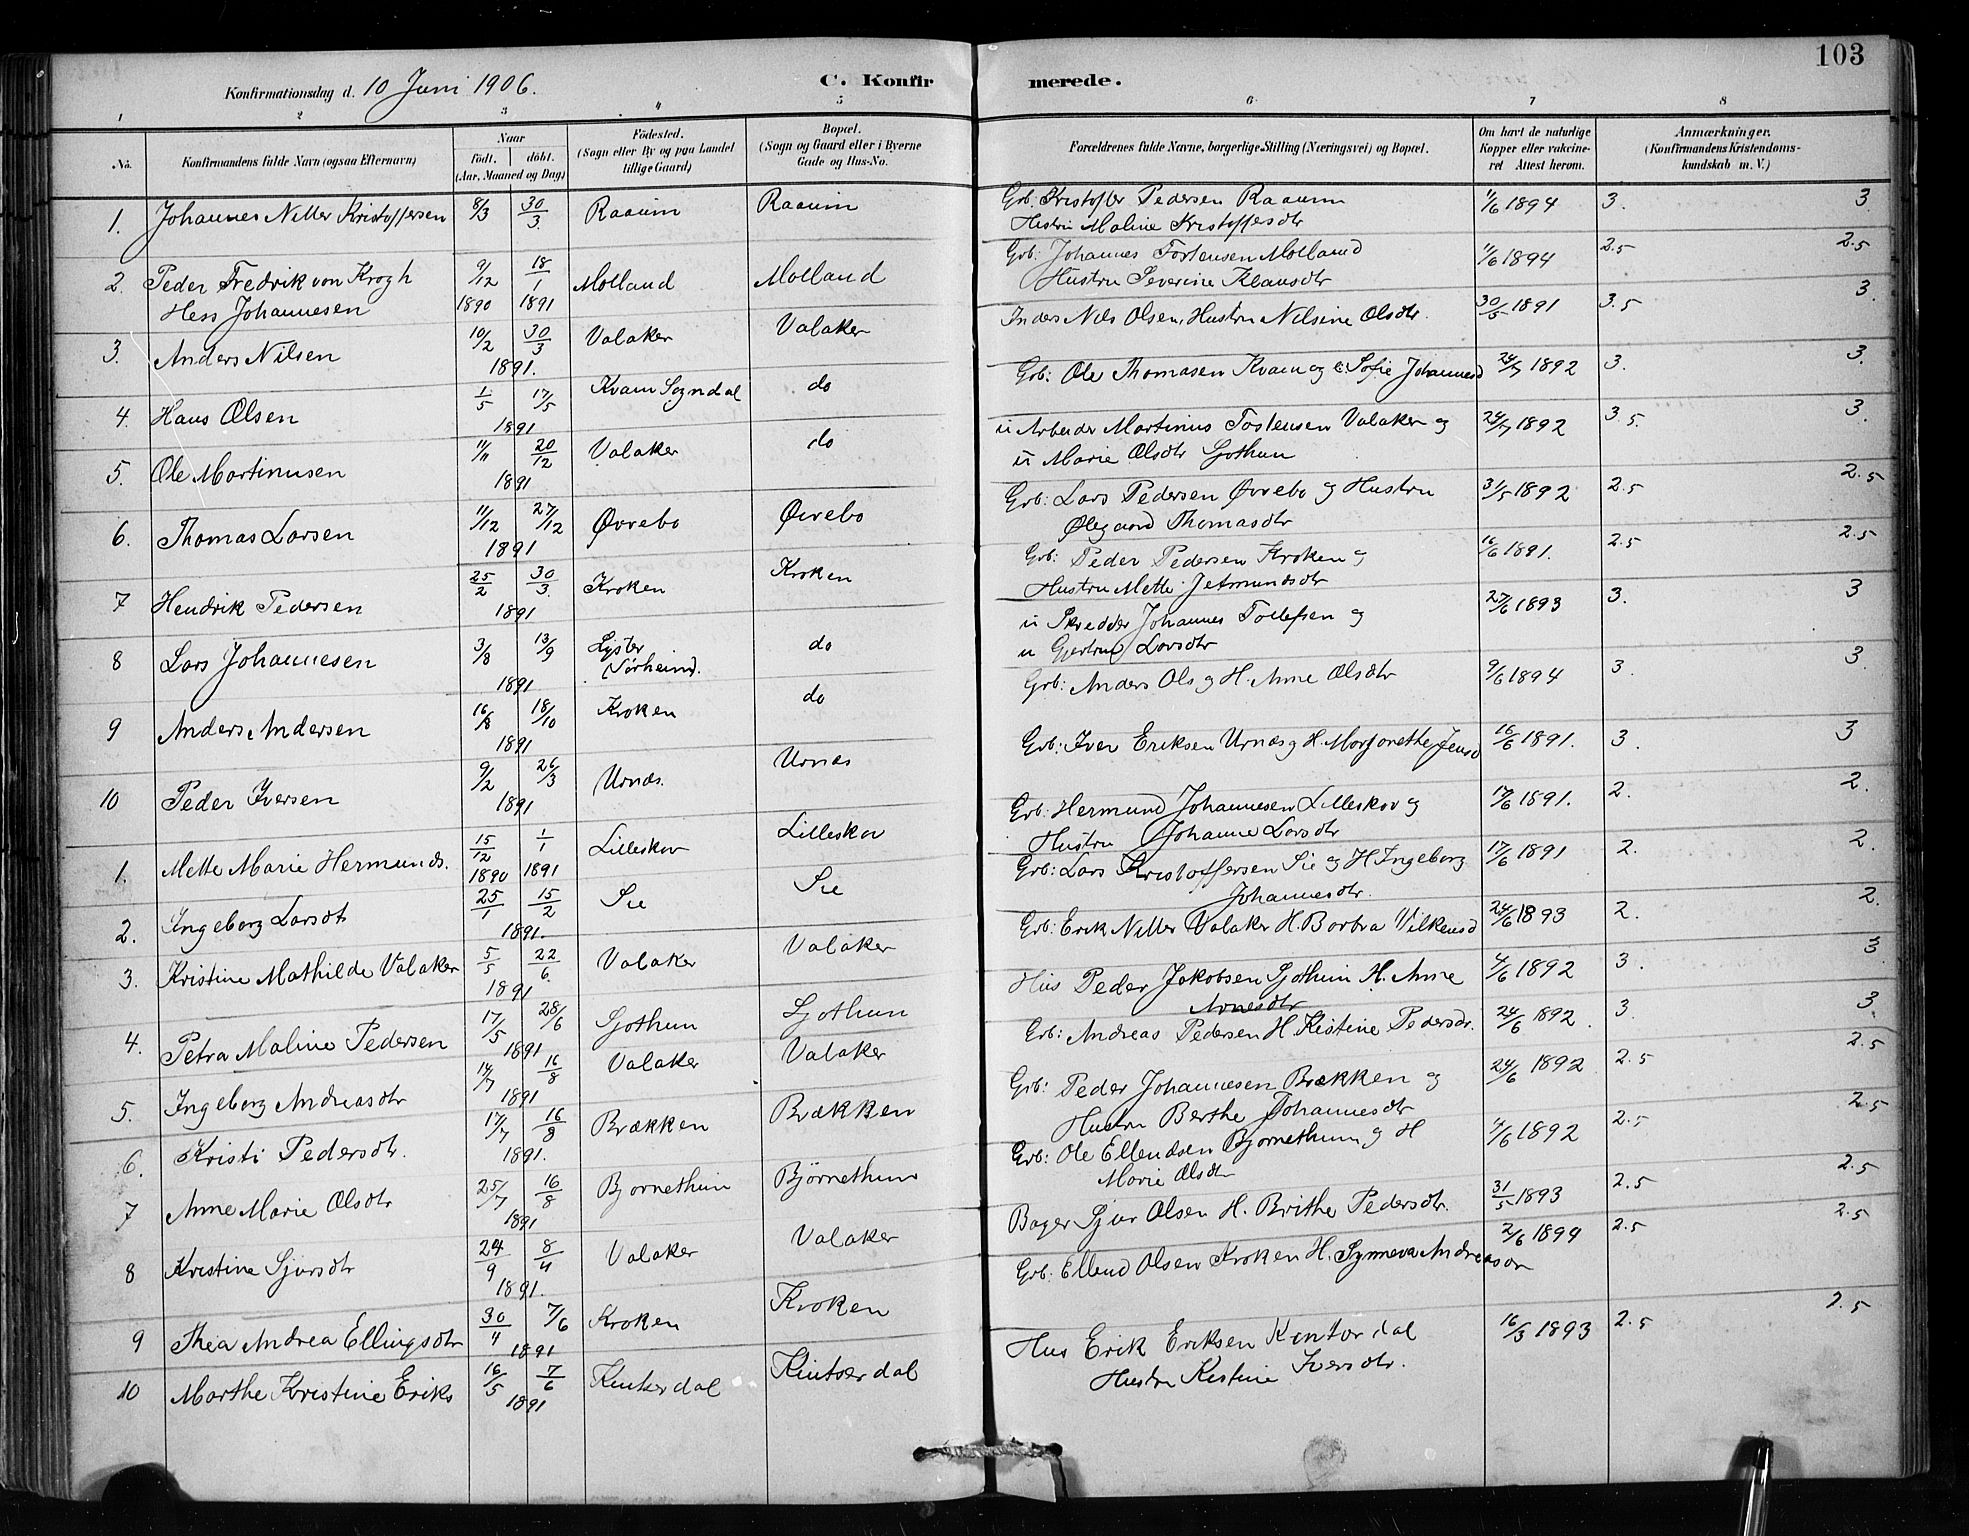 103
Konfirmationsdag d. 10 Juni 1906.
C. Konfirmerede.
1 2 3 4 5 6 7 8
No.
Konfirmandens fulde Navn (ogsaa Efternavn)
Naar
födt. döbt.
(Aar, Maaned og Dag)
Födested.
(Sogn eller By og paa Landet
tillige Gaard)
Bopæl.
(Sogn og Gaard eller i Byerne
Gade og Hus-No.
Forældrenes fulde Navne, borgerlige Stilling (Næringsvei) og Bopæl.
Om havt de naturlige
Kopper eller vakcine-
ret Attest herom.
Anmærkninger.
(Konfirmandens Kristendoms-
kundskab m. V.)
1. Johannes Nitter Kristoffersen 8/3 30/3. Raaum Raaum Grb. Kristoffer Pedersen Raaum 1/6 1894 3. 3.
Hustru Maline Kristoffersdtr
2. Peder Fredrik von Krogh 9/12 18/1 Molland Molland Grb: Johannes Torstensen Molland 1/6 1894 2.5 2.5
Hess Johannesen 1890 1891 Hustru Severine Klausdtr
3. Anders Nilsen 10/2 30/3 Valaker Valaker Inders Nils Olsen, Hustru Nilsine Olsdtr. 30/5 1891 3.5 3.
1891.
4. Hans Olsen 1/5 17/5 Kvam Sogndal do Grb: Ole Thomasen Kvam og Sofie Johannesd 24/7 1892 3. 3.
1891
5. Ole Martinusen 11/11 20/12 Valaker do u Arbeider Martinus Tostensen Valaker og 24/7 1892 3.5. 3.
1891 u Marie Olsdtr Sjøthun
6. Thomas Larsen 11/12 27/12 Øvrebo Øvrebo Grb: Lars Pedersen Øvrebo og Hustru 31/5 1892 2.5 2.5
1891 Ølegaard Thomasdtr
7 Hendrik Pedersen 25/2 30/3. Kroken Kroken Grb: Peder Pedersen Kroken og 16/6 1891. 2.5 2.5
1891 Hustru Mette Jetmundsdtr
8 Lars Johannesen 3/8 13/9 Lyster do u Skredder Johannes Tollefsen og 27/6 1893 3. 3
1891 Sørheim. u Gjertrud Larsdtr
9 Anders Andersen 16/8 18/10 Kroken do Grb: Anders Ols og H. Anne Olsdtr 9/6 1894 3. 3.
1891
10 Peder Iversen 9/2 26/3 Urnæs. Urnæs Grb: Iver Eriksen Urnæs og H. Margrethe Jensd 16/6 1891. 3. 3
1891
1. Mette Marie Hermunds. 15/12 1/1 Lilleskov Lilleskov Grb: Hermund Johannesen Lilleskov og 17/6 1891. 2. 2.
1890 1891 Hustru Johanne Larsdtr
2. Ingeborg Larsdt 25/1 15/2 Sie Sie Grb: Lars Kristoffersen Sie og H Ingeborg 17/6 1891 2. 2.
1891. Johannesdtr.
3. Kristine Mathilde Valaker 5/5 22/6. Valaker Valaker Grb: Erik Nitter Valaker H. Barbra Vilkensd 24/6 1893 2. 2.
1891
4. Petra Maline Pedersen 17/5 28/6 Sjøthun Sjøthun Hus Peder Jakobsen Sjøthun H. Anne 4/6 1892 3. 3
1891 Arnesdtr
5. Ingeborg Andreasdtr 14/7 16/8 Valaker Valaker Grb: Andreas Pedersen H. Kristine Pedersdr. 24/6 1892. 3. 3.
1891
6. Kristi Pedersdtr. 17/7 16/8 Brækken Brækken Grb: Peder Johannesen Brækken og 24/6 1892 2.5 2.5
1891. Hustru Berthe Johannesdtr
7 Anne Marie Olsdtr 25/7 16/8 Bjørnethun Björnethun Grb: Ole Ellendsen Bjørnethun og H 4/6 1892 2.5 2.5
1891 Marie Olsdtr
8 Kristine Sjursdtr 24/9 8/4 Valaker Valaker Bager Sjur Olsen H. Brithe Pedersdtr. 31/5 1893 2.5 2.5
1891.
9 Thea Andrea Ellingsdtr 30/4 7/6 Kroken Kroken Grb: Ellend Olsen Kroken H. Synneva Andreasdr 2/6 1894 2.5 2.5
1891
10 Marthe Kristine Eriks 16/5 7/6 Kinserdal Kintserdal Hus Erik Eriksen Kintserdal 16/3 1893 2.5 2.5
1891 Hustru Kristine Iversdtr.